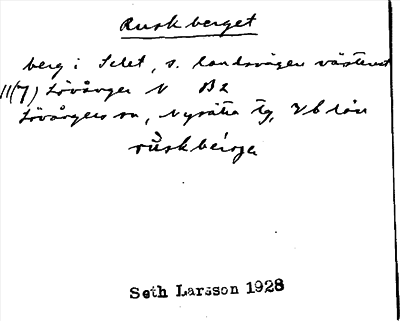 Ruskberget
berg i Selet, s. landsvägen västerut
11(7) Lövånger N B2
Lövångers sn, Nysätra tg, Vb län
ruskbérga
Seth Larsson 1928